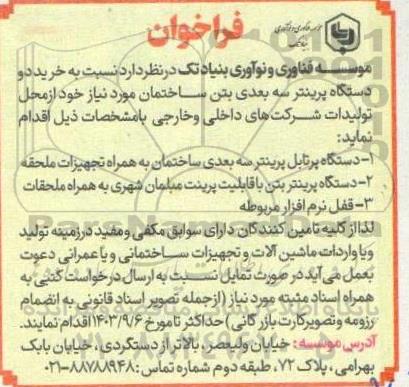 موسسه فناوری و نوآوری
بنیاد تک
فراخوان
موسسه فناوری و نوآوری بنیاد تک در نظر دارد نسبت به خرید دو
دستگاه پرینتر سه بعدی بتن ساختمان مورد نیاز خود از محل
تولیدات شرکت های داخلی و خارجی بامشخصات ذیل اقدام
نماید:
۱- دستگاه پرتابل پرینتر سه بعدی ساختمان به همراه تجهیزات ملحقه
۲- دستگاه پرینتر بتن با قابلیت پرینت مبلمان شهری به همراه ملحقات
۳- قفل نرم افزار مربوطه
لذا از کلیه تامین کنندگان دارای سوابق مکفی و مفید در زمینه تولید
ویا واردات ماشین آلات و تجهیزات ساختمانی و یا عمرانی دعوت
بعمل می آید در صورت تمایل نسبت به ارسال درخواست کتبی به
همراه اسناد مثبته مورد نیاز (از جمله تصویر اسناد قانونی به انضمام
رزومه وتصویر کارت بازرگانی) حداکثر تا مورخ ۱۴۰۳/۹/۶ اقدام نمایند.
آدرس موسسه: خیابان ولیعصر، بالاتر از دستگردی، خیابان بابک
بهرامی، پلاک ۷۲، طبقه دوم شماره تماس: ۸۸۷۸۸۹۴۸-۰۲۱